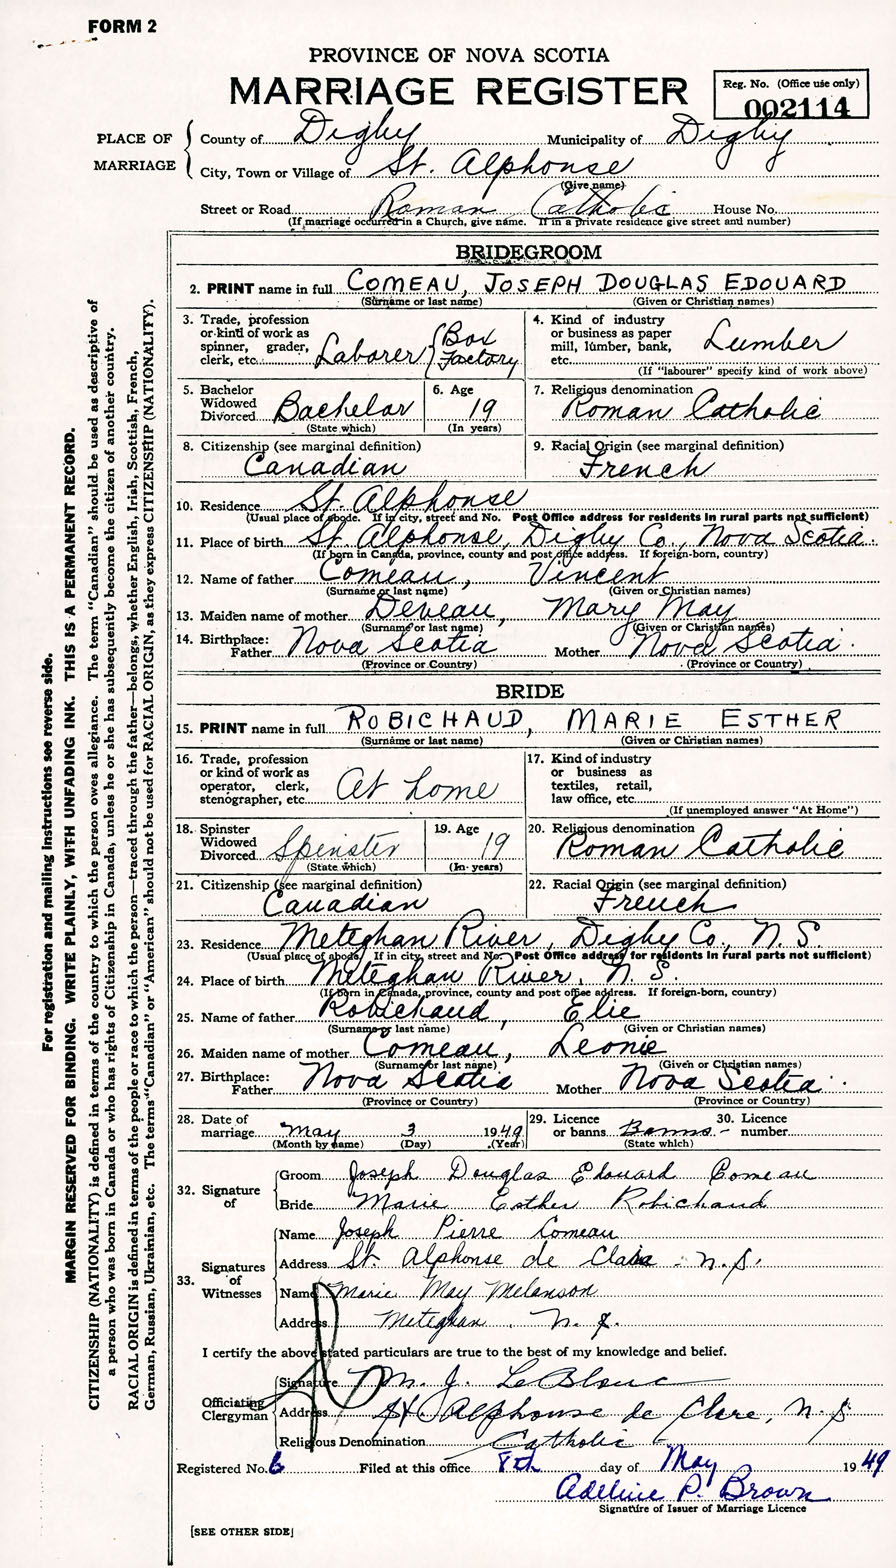 FORM 2
PROVINCE OF NOVA SCOTIA
MARRIAGE REGISTER
Reg. No. (Office use only)
002114
PLACE OF MARRIAGE
County of Digby Municipality of Digby
City, Town or Village of St. Alphonse
(Give name)
Street or Road Roman Catholic House No.
(If marriage occurred in a Church, give name. If in a private residence give street and number)
BRIDEGROOM
2. PRINT name in full COMEAU, JOSEPH DOUGLAS EDOUARD
(Surname or last name) (Given or Christian names)
3. Trade, profession or kind of work as spinner, grader, clerk, etc. Laborer { Box Factory
4. Kind of industry or business as paper mill, lumber, bank, etc. Lumber
(If "labourer" specify kind of work above)
5. Bachelor Widowed Divorced Bachelor
(State which)
6. Age 19
(In years)
7. Religious denomination
Roman Catholic
8. Citizenship (see marginal definition)
Canadian
9. Racial Origin (see marginal definition)
French
10. Residence St. Alphonse
(Usual place of abode. If in city, street and No. Post Office address for residents in rural parts not sufficient)
11. Place of birth St. Alphonse, Digby Co., Nova Scotia.
(If born in Canada, province, county and post office address. If foreign-born, country)
12. Name of father Comeau, Vincent
(Surname or last name) (Given or Christian names)
13. Maiden name of mother Deveau, Mary May
(Surname or last name) (Given or Christian names)
14. Birthplace: Father Nova Scotia Mother Nova Scotia.
(Province or Country) (Province or Country)
BRIDE
15. PRINT name in full ROBICHAUD, MARIE ESTHER
(Surname or last name) (Given or Christian names)
16. Trade, profession or kind of work as operator, clerk, stenographer, etc. At home
17. Kind of industry or business as textiles, retail, law office, etc.
(If unemployed answer "At Home")
18. Spinster Widowed Divorced Spinster
(State which)
19. Age 19
(In years)
20. Religious denomination
Roman Catholic
21. Citizenship (see marginal definition)
Canadian
22. Racial Origin (see marginal definition)
French
23. Residence Meteghan River, Digby Co., N. S.
(Usual place of abode. If in city, street and No. Post Office address for residents in rural parts not sufficient)
24. Place of birth Meteghan River, N. S.
(If born in Canada, province, county and post office address. If foreign-born, country)
25. Name of father Robichaud, Elie
(Surname or last name) (Given or Christian names)
26. Maiden name of mother Comeau, Leonie
(Surname or last name) (Given or Christian names)
27. Birthplace: Father Nova Scotia Mother Nova Scotia.
(Province or Country) (Province or Country)
28. Date of marriage May 3 1949
(Month by name) (Day) (Year)
29. Licence or banns Banns -
(State which)
30. Licence number
32. Signature of
Groom Joseph Douglas Edouard Comeau
Bride Marie Esther Robichaud
33. Signatures of Witnesses
Name Joseph Pierre Comeau
Address St. Alphonse de Clare - N. S.
Name Marie May Melanson
Address Meteghan, N. S.
I certify the above stated particulars are true to the best of my knowledge and belief.
Officiating Clergyman
Signature M. J. LeBlanc
Address St. Alphonse de Clare, N. S
Religious Denomination Catholic -
Registered No. 6 Filed at this office 8th day of May 1949
Adeline P. Brown
Signature of Issuer of Marriage Licence
[SEE OTHER SIDE]
For registration and mailing instructions see reverse side.
MARGIN RESERVED FOR BINDING. WRITE PLAINLY, WITH UNFADING INK. THIS IS A PERMANENT RECORD.
CITIZENSHIP (NATIONALITY) is defined in terms of the country to which the person owes allegiance. The term "Canadian" should be used as descriptive of
a person who was born in Canada or who has rights of Citizenship in Canada, unless he or she has subsequently become the citizen of another country.
RACIAL ORIGIN is defined in terms of the people or race to which the person—traced through the father—belongs, whether English, Irish, Scottish, French,
German, Russian, Ukrainian, etc. The terms "Canadian" or "American" should not be used for RACIAL ORIGIN, as they express CITIZENSHIP (NATIONALITY).